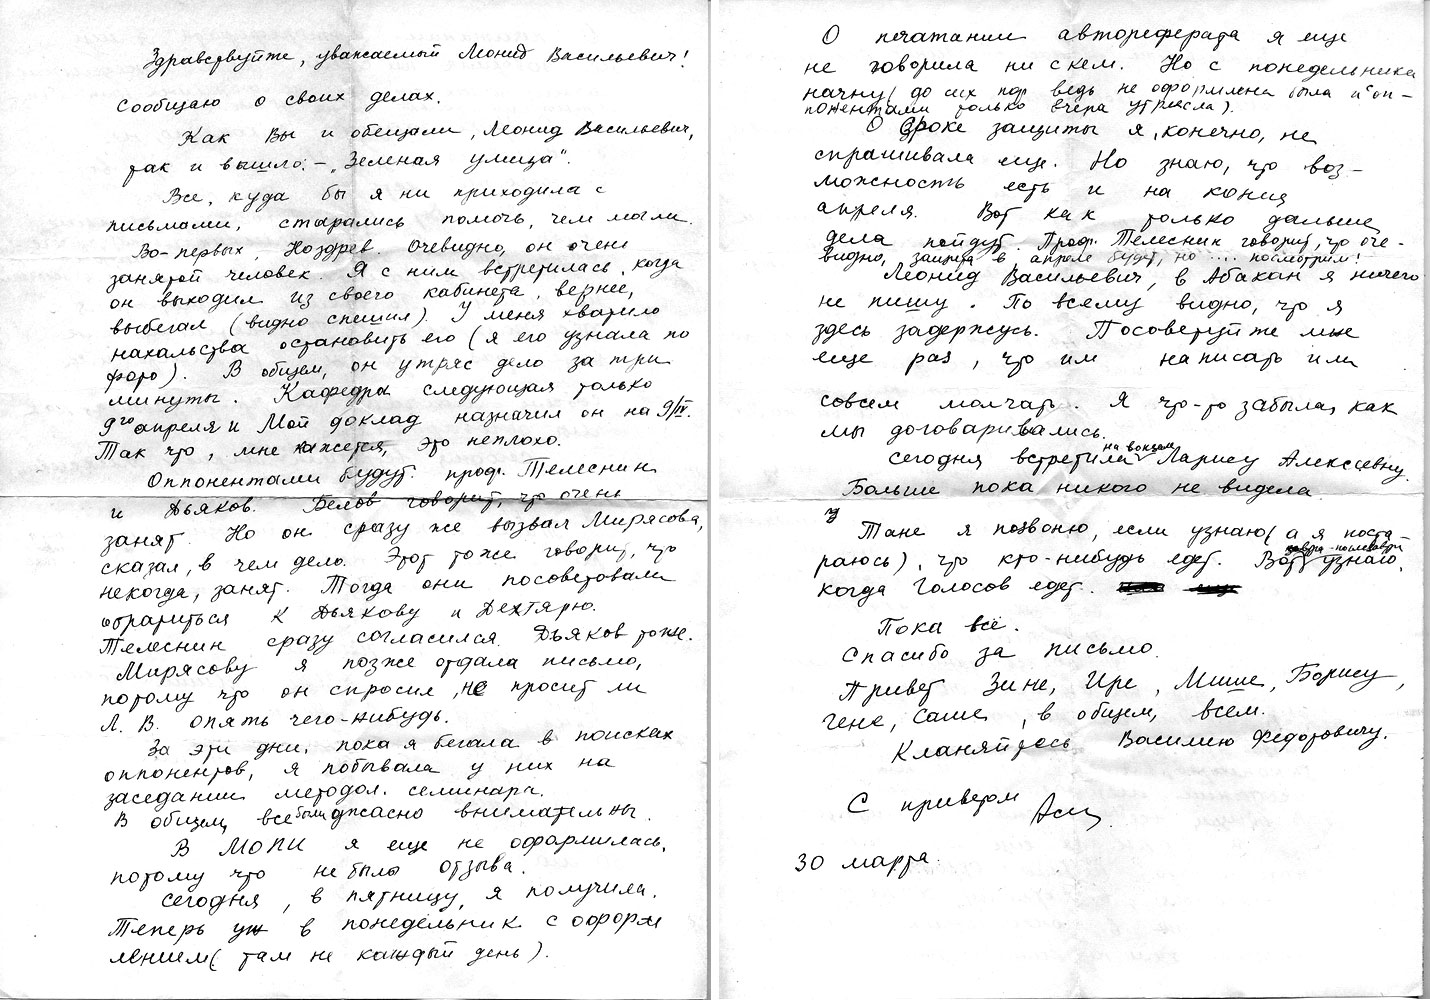 Здравствуйте, уважаемый Леонид Васильевич!
Сообщаю о своих делах.
Как Вы и обещали, Леонид Васильевич,
так и вышло: – „Зеленая улица“.
Все, куда бы я ни приходила с
письмами, старались помочь, чем могли.
Во-первых, Ноздрев. Очевидно, он очень
занятой человек. Я с ним встретилась, когда
он выходил из своего кабинета, вернее,
выбегал (видно спешил). У меня хватило
нахальства остановить его (я его узнала по
фото). В общем, он утряс дело за три
минуты. Кафедра следующая только
9го апреля и Мой доклад назначил он на 9/IV.
Так что, мне кажется, это неплохо.
Оппонентами будут: проф. Телеснин
и Дьяков. Белов говорит, что очень
занят. Но он сразу же вызвал Мирясова,
сказал, в чем дело. Этот тоже говорит, что
некогда, занят. Тогда они посоветовали
обратиться к Дьякову и Дехтярю.
Телеснин сразу согласился. Дьяков тоже.
Мирясову я позже отдала письмо,
потому что он спросил, не просит ли
Л. В. опять чего-нибудь.
За эти дни, пока я бегала в поисках
оппонентов, я побывала у них на
заседании методол. семинара.
В общем, все были ужасно внимательны.
В МОПИ я еще не оформилась,
потому что не было отзыва.
Сегодня, в пятницу, я получила.
Теперь уж в понедельник с оформ
лением (там не каждый день).
О печатании автореферата я еще
не говорила ни с кем. Но с понедельника
начну (до сих пор ведь не оформлена была и с оп-
понентами только вчера утрясла).
О сроке защиты я, конечно, не
спрашивала еще. Но знаю, что воз-
можность есть и на конец
апреля. Вот как только дальше
дела пойдут. Проф. Телеснин говорит, что оче-
видно, защита в апреле будет, но .... посмотрим!
Леонид Васильевич, в Абакан я ничего
не пишу. По всему видно, что я
здесь задержусь. Посоветуйте мне
еще раз, что им написать или
совсем молчать. Я что-то забыла, как
мы договаривались.
Сегодня встретили на вокзале Ларису Алексеевну.
Больше пока никого не видела.
Тане я позвоню, если узнаю (а я поста-
раюсь), что кто-нибудь едет. Вот завтра-послезавтра узнаю,
когда Голосов едет.
Пока всё.
Спасибо за письмо.
Привет Зине, Ире, Мише, Борису,
Гене, Саше, в общем, всем.
Кланяйтесь Василию Федоровичу.
С приветом
30 марта.